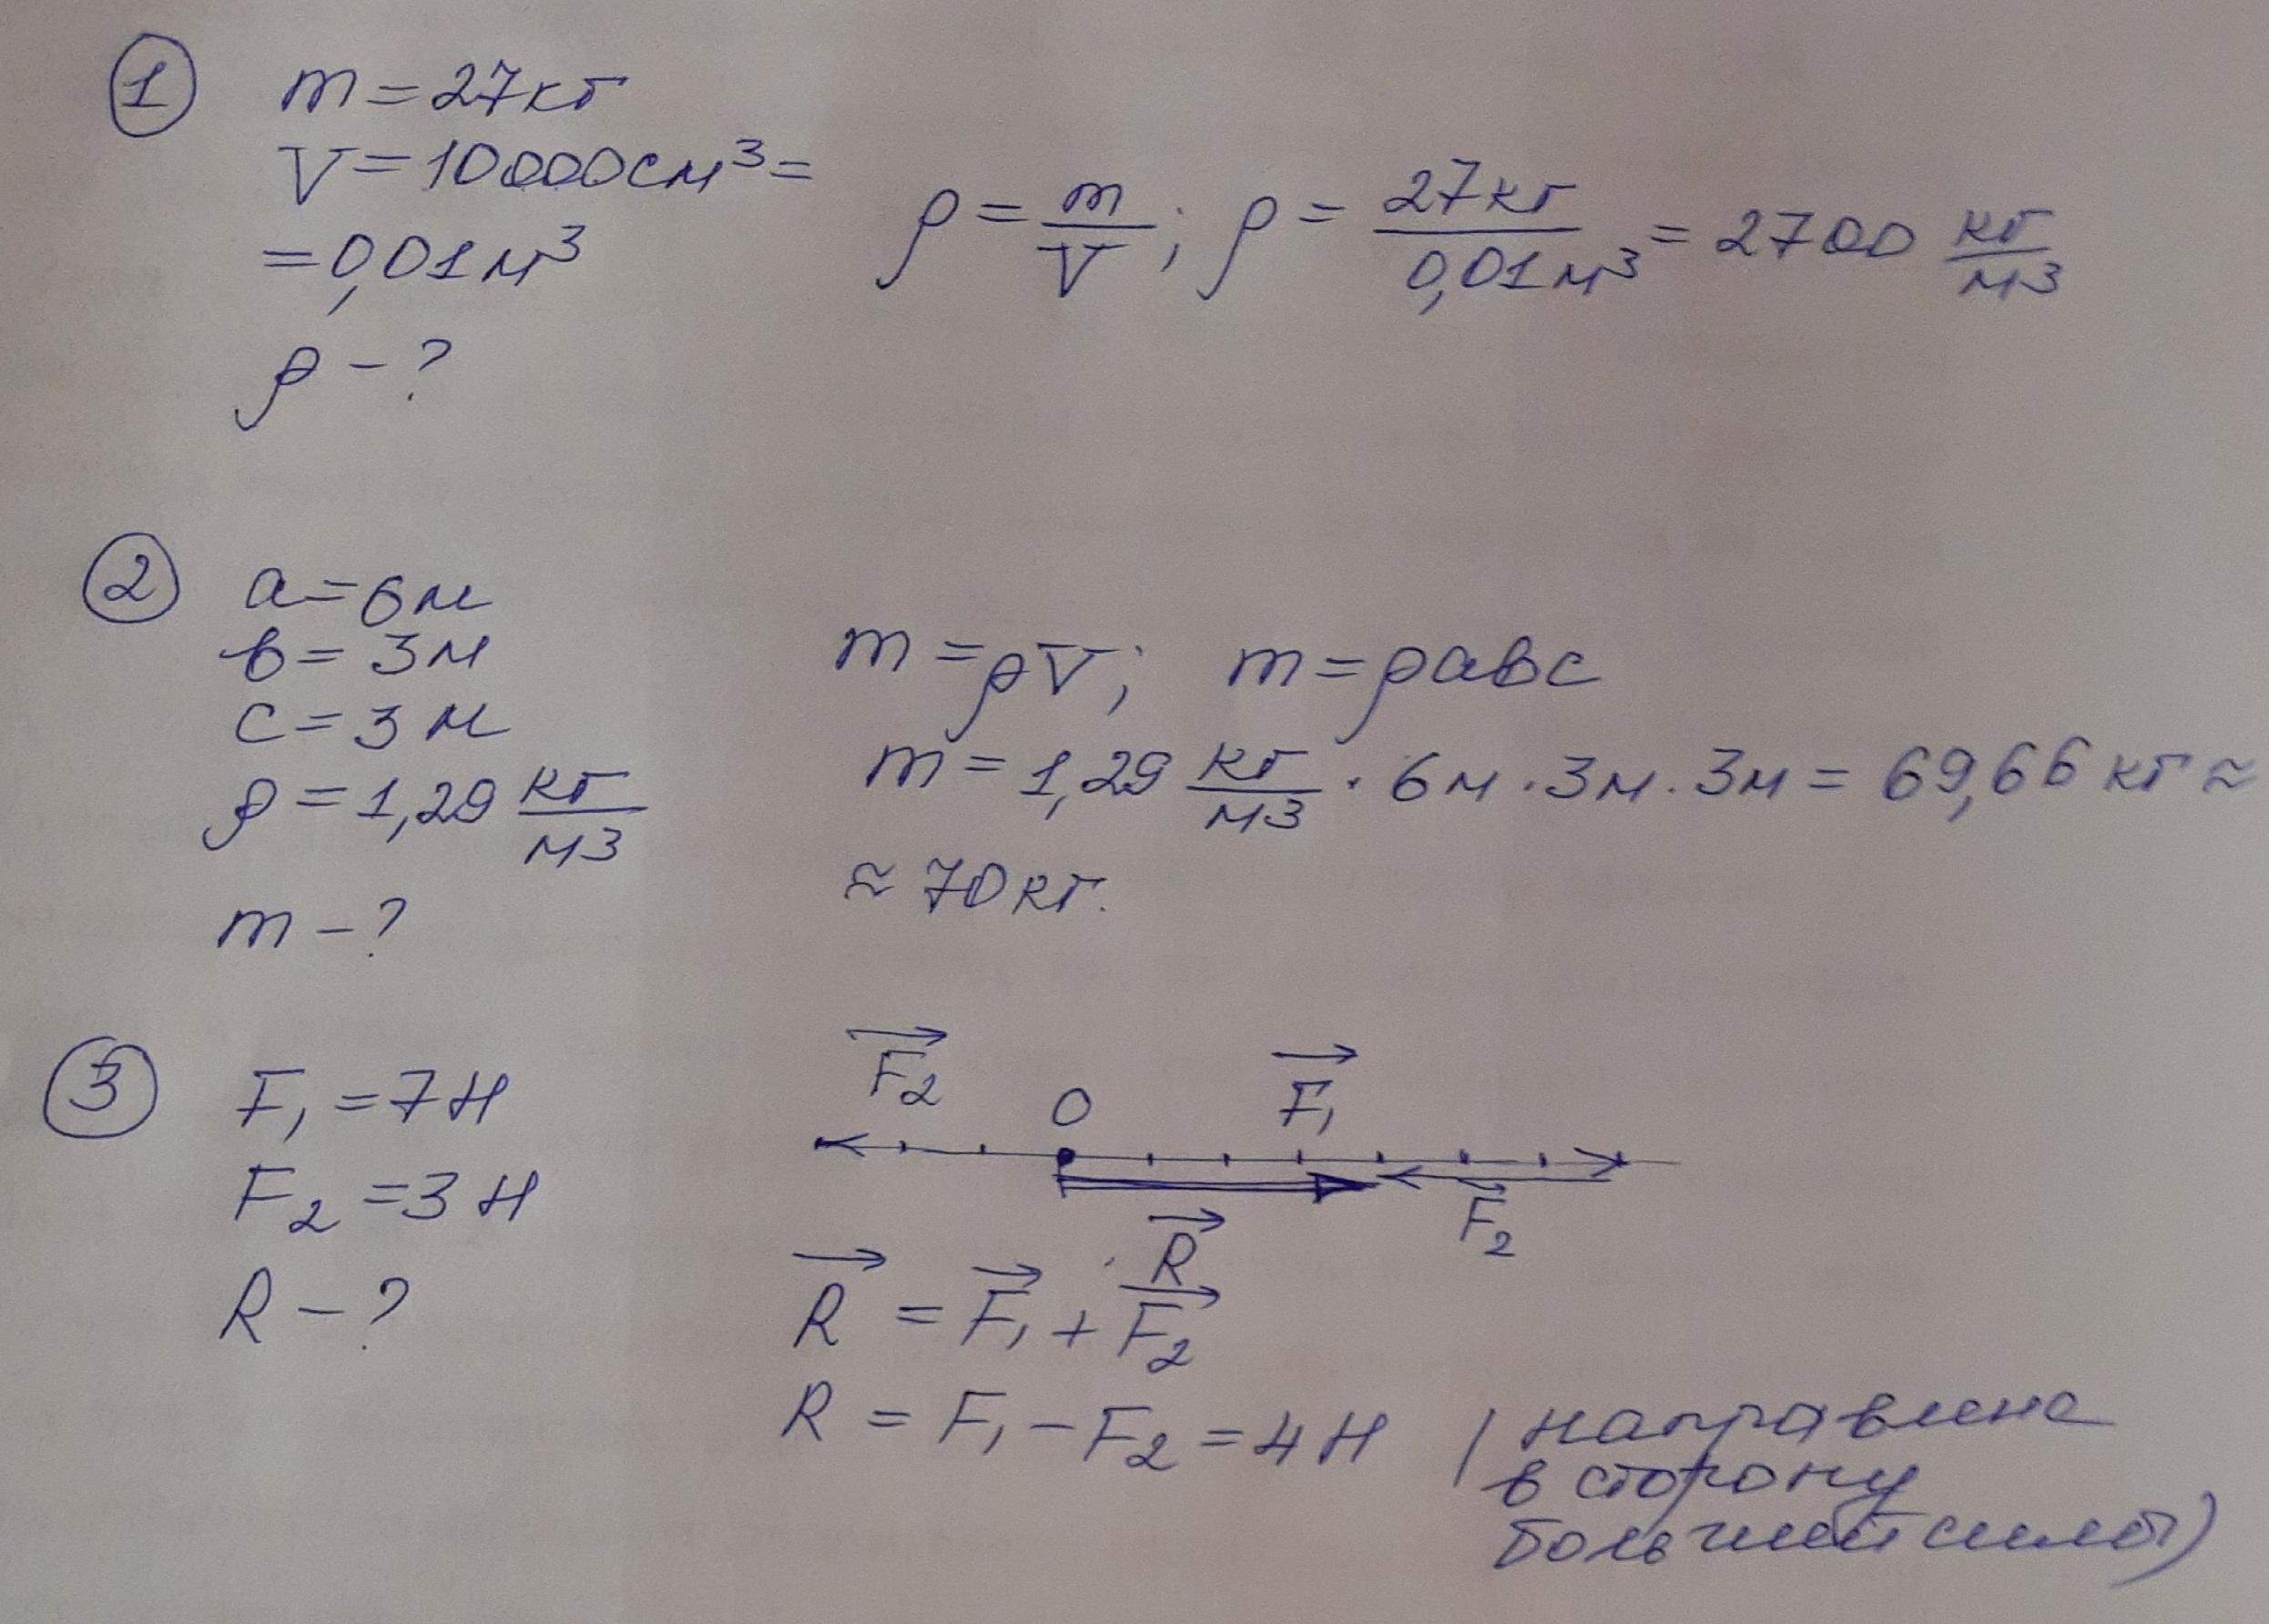 1 m = 27 кг
V = 10000 см³ =
= 0,01 м³
ρ - ?
ρ = m/V; ρ = 27 кг/0,01 м³ = 2700 кг/м³
2 a = 6 м
в = 3 м
c = 3 м
ρ = 1,29 кг/м³
m - ?
m = ρV; m = ρавс
m = 1,29 кг/м³ · 6 м · 3 м · 3 м = 69,66 кг ≈
≈ 70 кг.
3 F₁ = 7 Н
F₂ = 3 Н
R - ?
F₂ O F₁
F₂
R
R = F₁ + F₂
R = F₁ - F₂ = 4 Н (направлена
в сторону
большей силы)